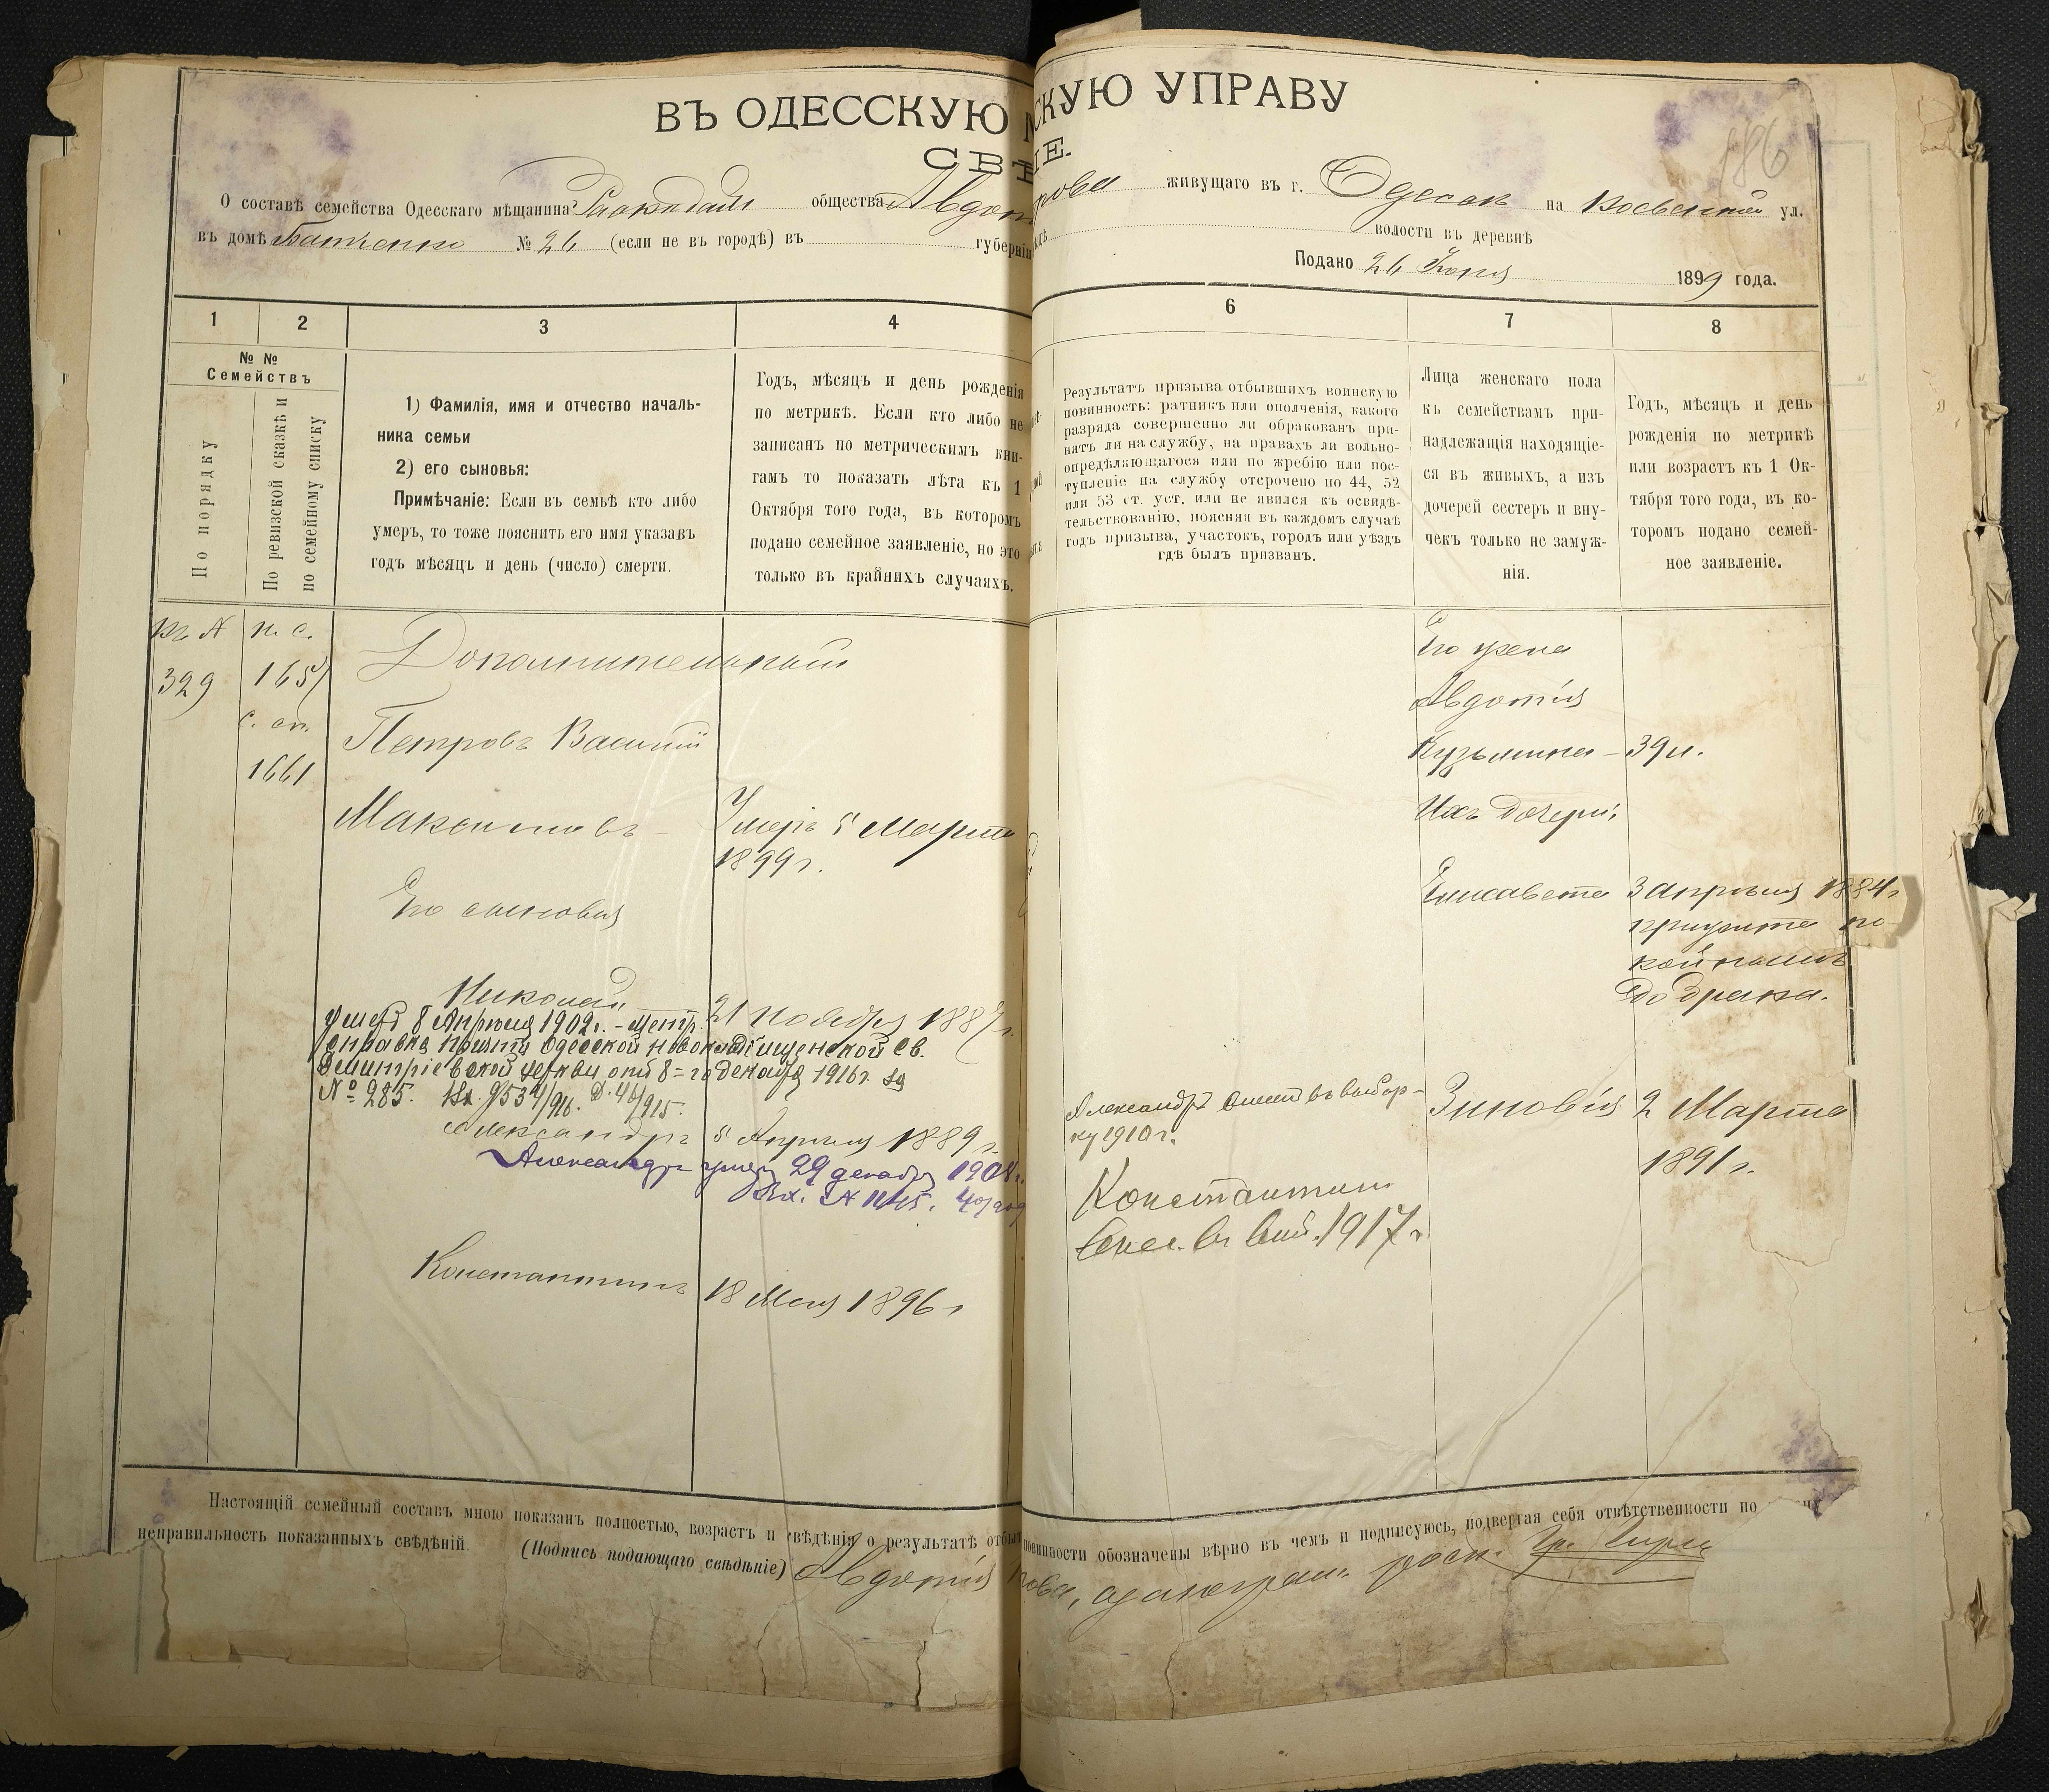 ВЪ ОДЕССКУЮ СКУЮ УПРАВУ
СВѢ IE.
186
О составѣ семейства Одесскаго мѣщанина общества Авдот рова живущаго въ г. Одессѣ на Косвенной ул.
въ домѣ № 26 (если не въ городѣ) въ губерніи волости въ деревнѣ
Подано 26 1899 года.
1 2 3 4 6 7 8
№ №
Семействъ
По порядку
По ревизской сказкѣ и
по семейному списку
1) Фамилія, имя и отчество началь-
ника семьи
2) его сыновья:
Примѣчаніе: Если въ семьѣ кто либо
умеръ, то тоже пояснить его имя указавъ
годъ мѣсяцъ и день (число) смерти.
Годъ, мѣсяцъ и день рожденія
по метрикѣ. Если кто либо не
записанъ по метрическимъ кни-
гамъ то показать лѣта къ 1
Октября того года, въ которомъ
подано семейное заявленіе, но это
только въ крайнихъ случаяхъ.
Результатъ призыва отбывшихъ воинскую
повинность: ратникъ или ополченія, какого
разряда совершенно ли обракованъ при-
нятъ ли на службу, на правахъ ли вольно-
опредѣляющагося или по жребію или пос-
тупленіе на службу отсрочено по 44, 52
или 53 ст. уст. или не явился къ освидѣ-
тельствованію, поясняя въ каждомъ случаѣ
годъ призыва, участокъ, городъ или уѣздъ
гдѣ былъ призванъ.
Лица женскаго пола
къ семействамъ при-
надлежащія находящіе-
ся въ живыхъ, а изъ
дочерей сестеръ и вну-
чекъ только не замуж-
нія.
Годъ, мѣсяцъ и день
рожденія по метрикѣ
или возрастъ къ 1 Ок-
тября того года, въ ко-
торомъ подано семей-
ное заявленіе.
къ №
329
п. с.
1657
с. сп.
1661
Дополнительный
Петровъ Василій
Максимовъ Умеръ 5 Марта
1899 г.
Его сыновья
Николай 21 Ноября 1887 г.
умеръ 8 Апрѣля 1902 г. - Метр.
справка причта Одесской новокладбищенской Св.
Димитріевской церкви отъ 8=го декабря 1916 г. за
№ 285. Вх. 9534/916. Д. 46/915.
Александръ 5 Апрѣля 1889 г.
Александръ умеръ 29 декабря 1908 г.
Вх. № 1145.
Константинъ 18 Мая 1896 г
Александръ внесенъ въ выбор-
ку 1910 г.
Константинъ
внес. въ выб. 1917 г.
Его жена
Авдотія
Кузьмина - 39 л.
Ихъ дочери:
Елисавета 3 апрѣля 1884 г.
прижита по-
койнымъ
до брака.
Зиновія 2 Марта
1891 г.
Настоящій семейный составъ мною показанъ полностью, возрастъ и свѣдѣнія о результатѣ отбыв повинности обозначены вѣрно въ чемъ и подписуюсь, подвергая себя отвѣтственности по
неправильность показанныхъ свѣдѣній.
(Подпись подающаго свѣдѣніе) Авдотія рова, а за неграм. расп.